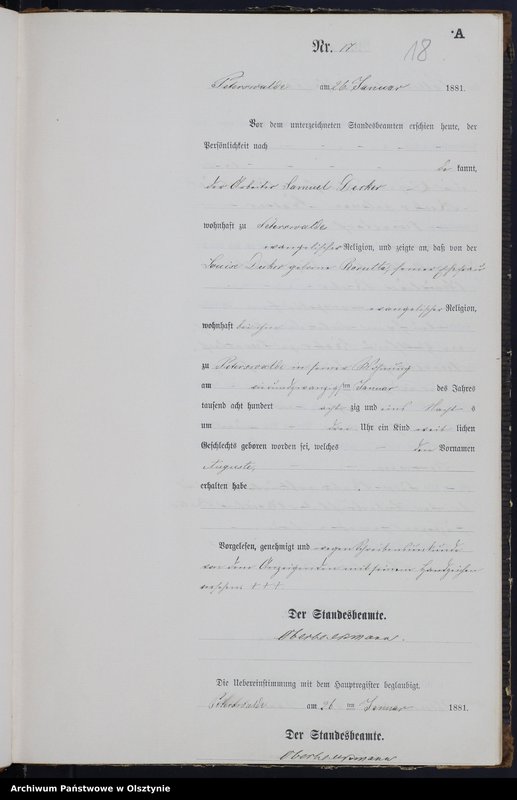 A
Nr. 17
18
Peterswalde am 26 Januar 1881.
Vor dem unterzeichneten Standesbeamten erschien heute, der
Persönlichkeit nach
be kannt,
der Arbeiter Samuel Decker
wohnhaft zu Peterswalde
evangelischer Religion, und zeigte an, daß von der
Louise Decker geborne seiner Ehefrau
evangelischer Religion,
wohnhaft bei ihm
zu Peterswalde in seiner Wohnung
am einundzwanzigsten Januar des Jahres
tausend acht hundert acht zig und eins Nacht s
um drei Uhr ein Kind weib lichen
Geschlechts geboren worden sei, welches den Vornamen
Auguste,
erhalten habe
Vorgelesen, genehmigt und wegen Schreibensunkunde
von dem Anzeigenden mit seinem Handzeichen
versehen + + +
Der Standesbeamte.
Die Uebereinstimmung mit dem Hauptregister beglaubigt.
Peterswalde am 26 ten Januar 1881.
Der Standesbeamte.
Archiwum Państwowe w Olsztynie